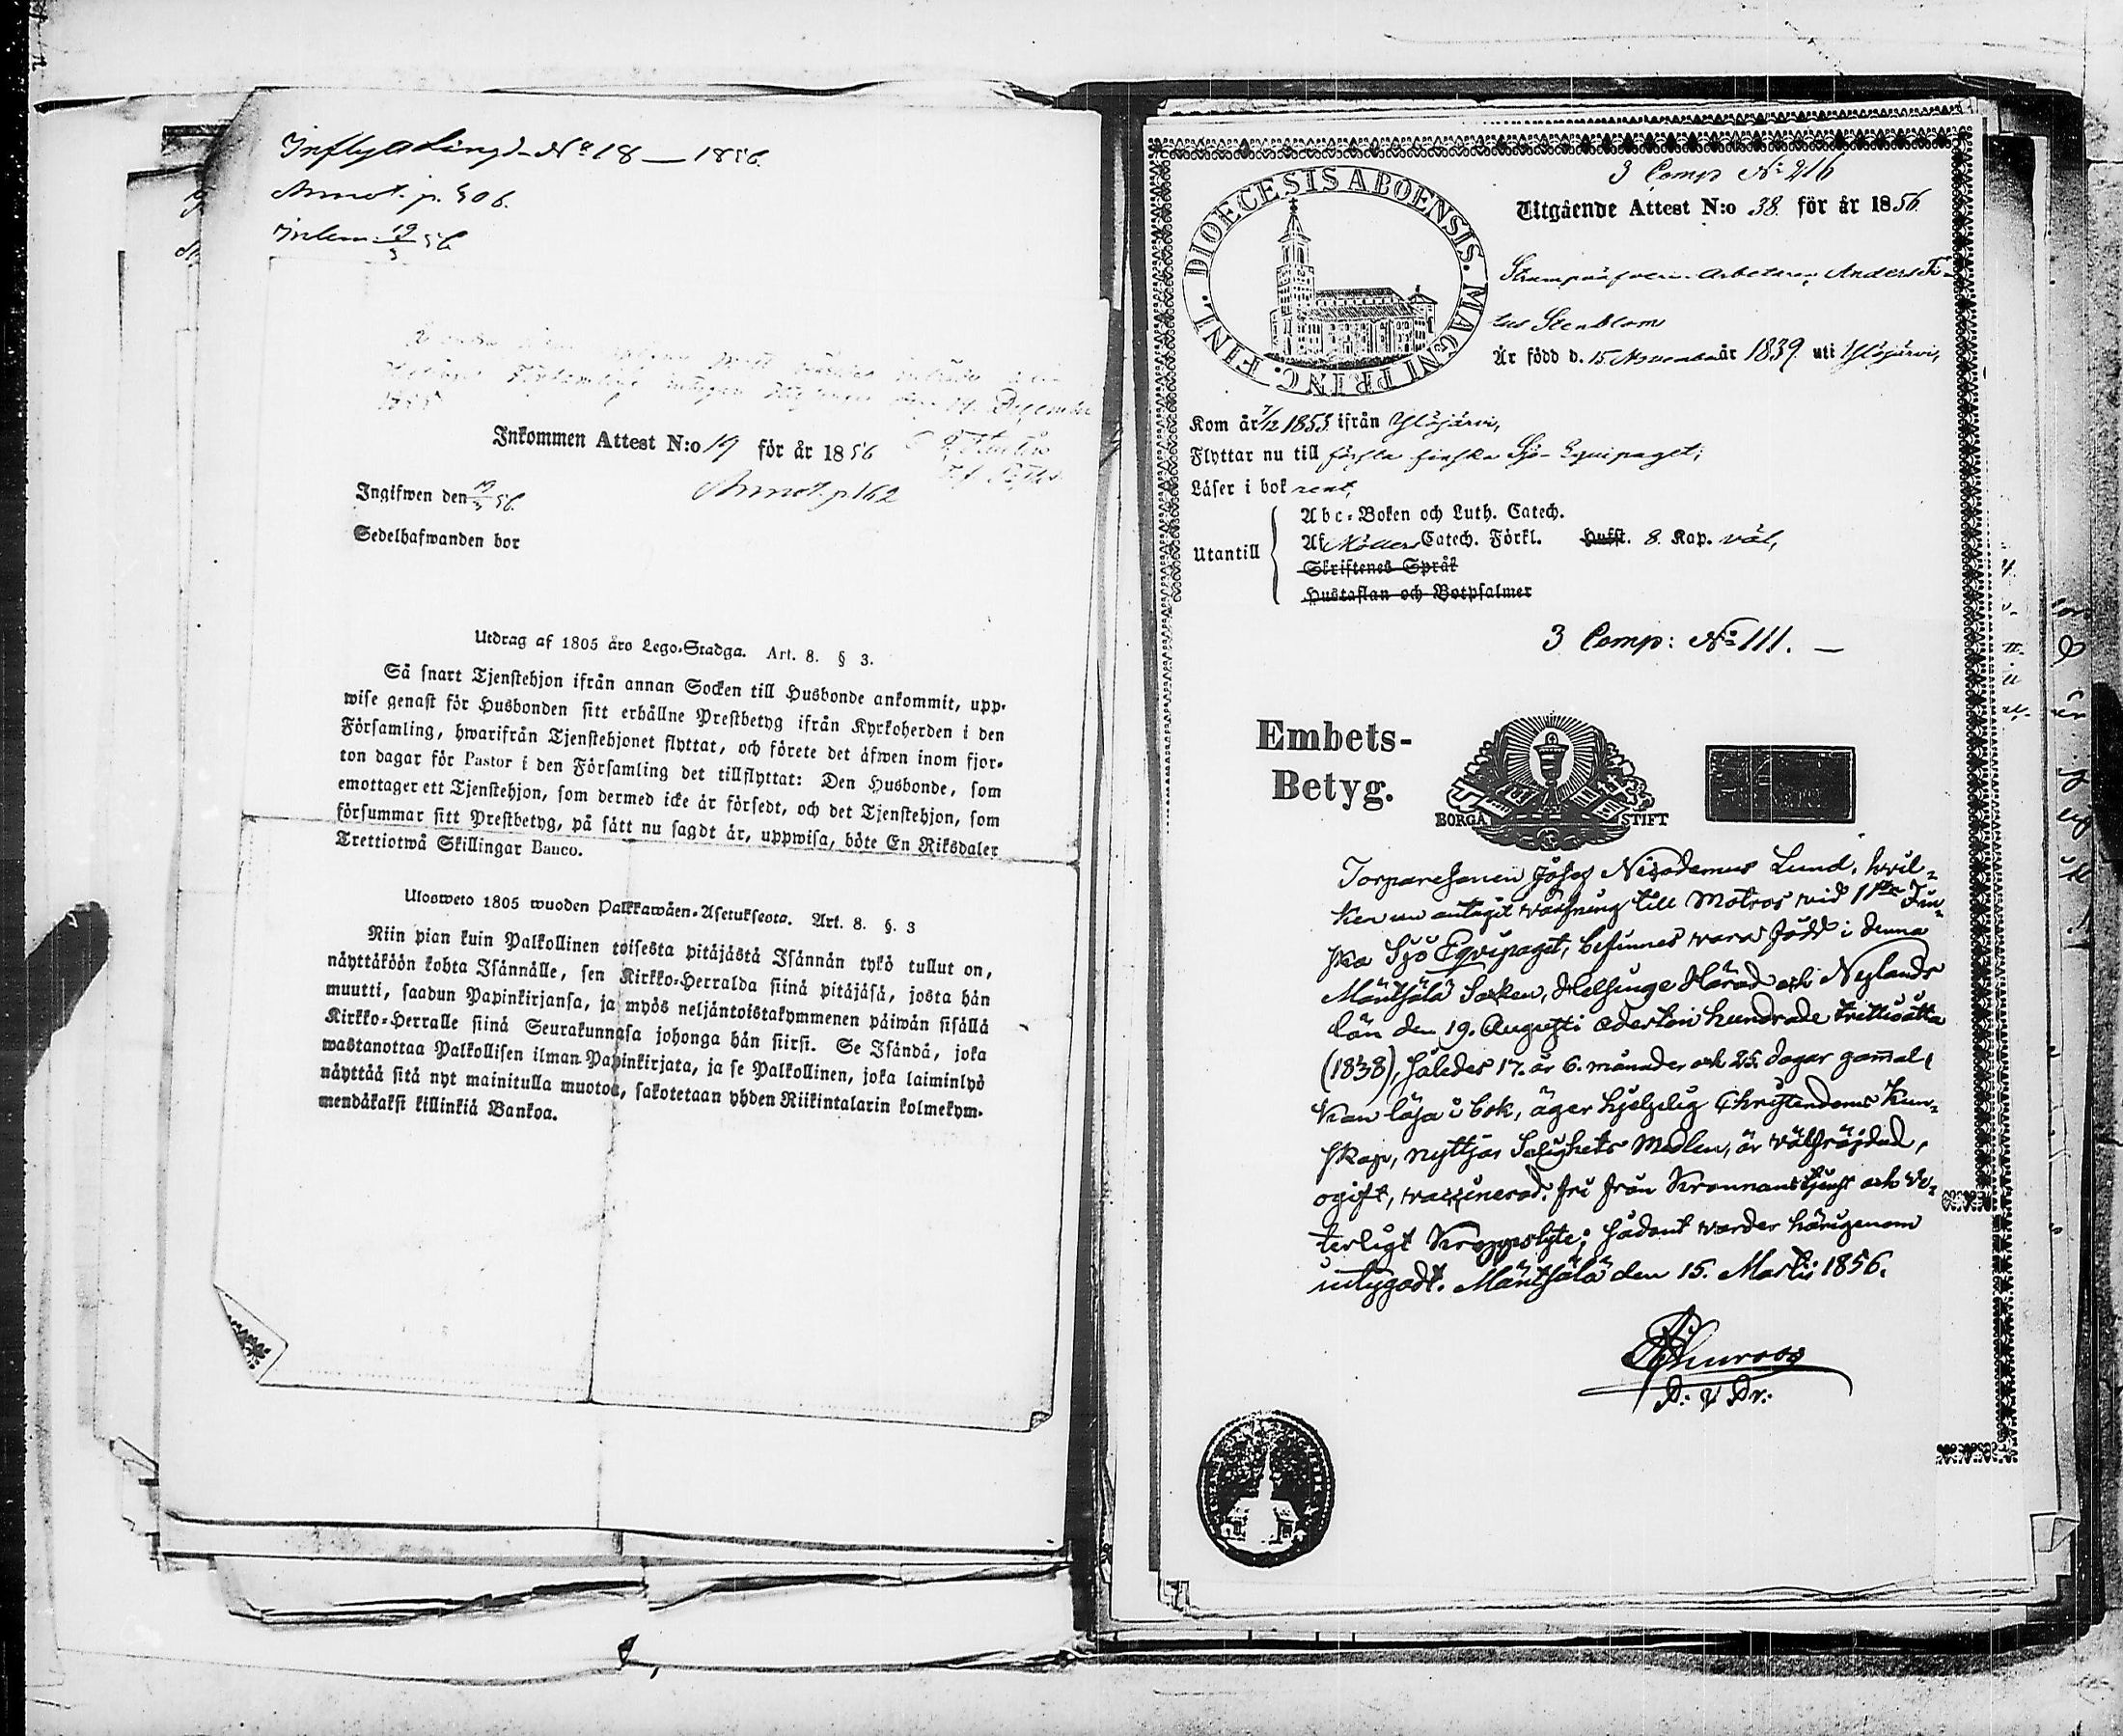 Inflyttning N:o 18 — 1856.
Annot. p. 506.
Inlem. 19/3 56.
December
1855
Inkommen Attest N:o 19 för år 1856
Annot. p. 162
Ingifwen den 19/3 56.
Sedelhafwanden bor
Utdrag af 1805 års Lego-Stadga. Art. 8. § 3.
Så snart Tjenstehjon ifrån annan Socken till Husbonde ankommit, upp-
wise genast för Husbonden sitt erhållne Prestbetyg ifrån Kyrkoherden i den
Församling, hwarifrån Tjenstehjonet flyttat, och förete det äfwen inom fjor-
ton dagar för Pastor i den Församling det tillflyttat: Den Husbonde, som
emottager ett Tjenstehjon, som dermed icke är försedt, och det Tjenstehjon, som
försummar sitt Prestbetyg, på sätt nu sagdt är, uppwisa, böte En Riksdaler
Trettiotwå Skillingar Banco.
Ulosweto 1805 wuoden Palkkawäen-Asetuksesta. Art. 8. §. 3
Niin pian kuin Palkollinen toisesta pitäjästä Isännän tykö tullut on,
näyttäköön kohta Isännälle, sen Kirkko-Herralda siinä pitäjäsä, josta hän
muutti, saadun Papinkirjansa, ja myös neljäntoistakymmenen päiwän sisällä
Kirkko-Herralle siinä Seurakunnasa johonga hän siirsi. Se Isändä, joka
wastanottaa Palkollisen ilman Papinkirjata, ja se Palkollinen, joka laiminlyö
näyttää sitä nyt mainitulla muotoa, sakotetaan yhden Riikintalarin kolmekym-
mendäkaksi killinkiä Bankoa.
3 Comp N:o 216
DIOECESIS ABOENSIS. MAGNI PRINC. FINL.
Utgående Attest N:o 38. för år 1856.
Arbetaren Anders Ti-
tus Stenblom
Är född d. 15 November år 1839. uti Ylöjärvi,
Kom år 7/12 1855 ifrån Ylöjärvi,
Flyttar nu till första finska Sjö-Equipaget;
Läser i bok rent,
Utantill
Abc-Boken och Luth. Catech.
Af Möllers Catech. Förkl. Hufst. 8. Kap. väl,
Skriftenes Språk
Hustaflan och Botpsalmer
3 Comp: N:o 111. —
Embets-
Betyg.
BORGÅ STIFT
Torparesonen Josef Nikodemus Lund, hvil-
ken nu antagit värfning till Matros vid 1sta Fin-
ska Sjö Eqvipaget, befinnes vara född i denna
Mäntsälä Socken, Helsinge Härad och Nylands
län den 19. Augusti Aderton hundrade trettioåtta
(1838), således 17. år 6. månader och 25. dagar gammal,
kan läsa i bok, äger hjelpelig Christendoms Kun-
skap, nyttjar Salighets Medlen, är välfräjdad,
ogift, vaccinerad, fri från Kronnans tjenst och ve-
terligt Kroppslyte; sådant varder härigenom
intygadt. Mäntsälä den 15. Martii 1856.